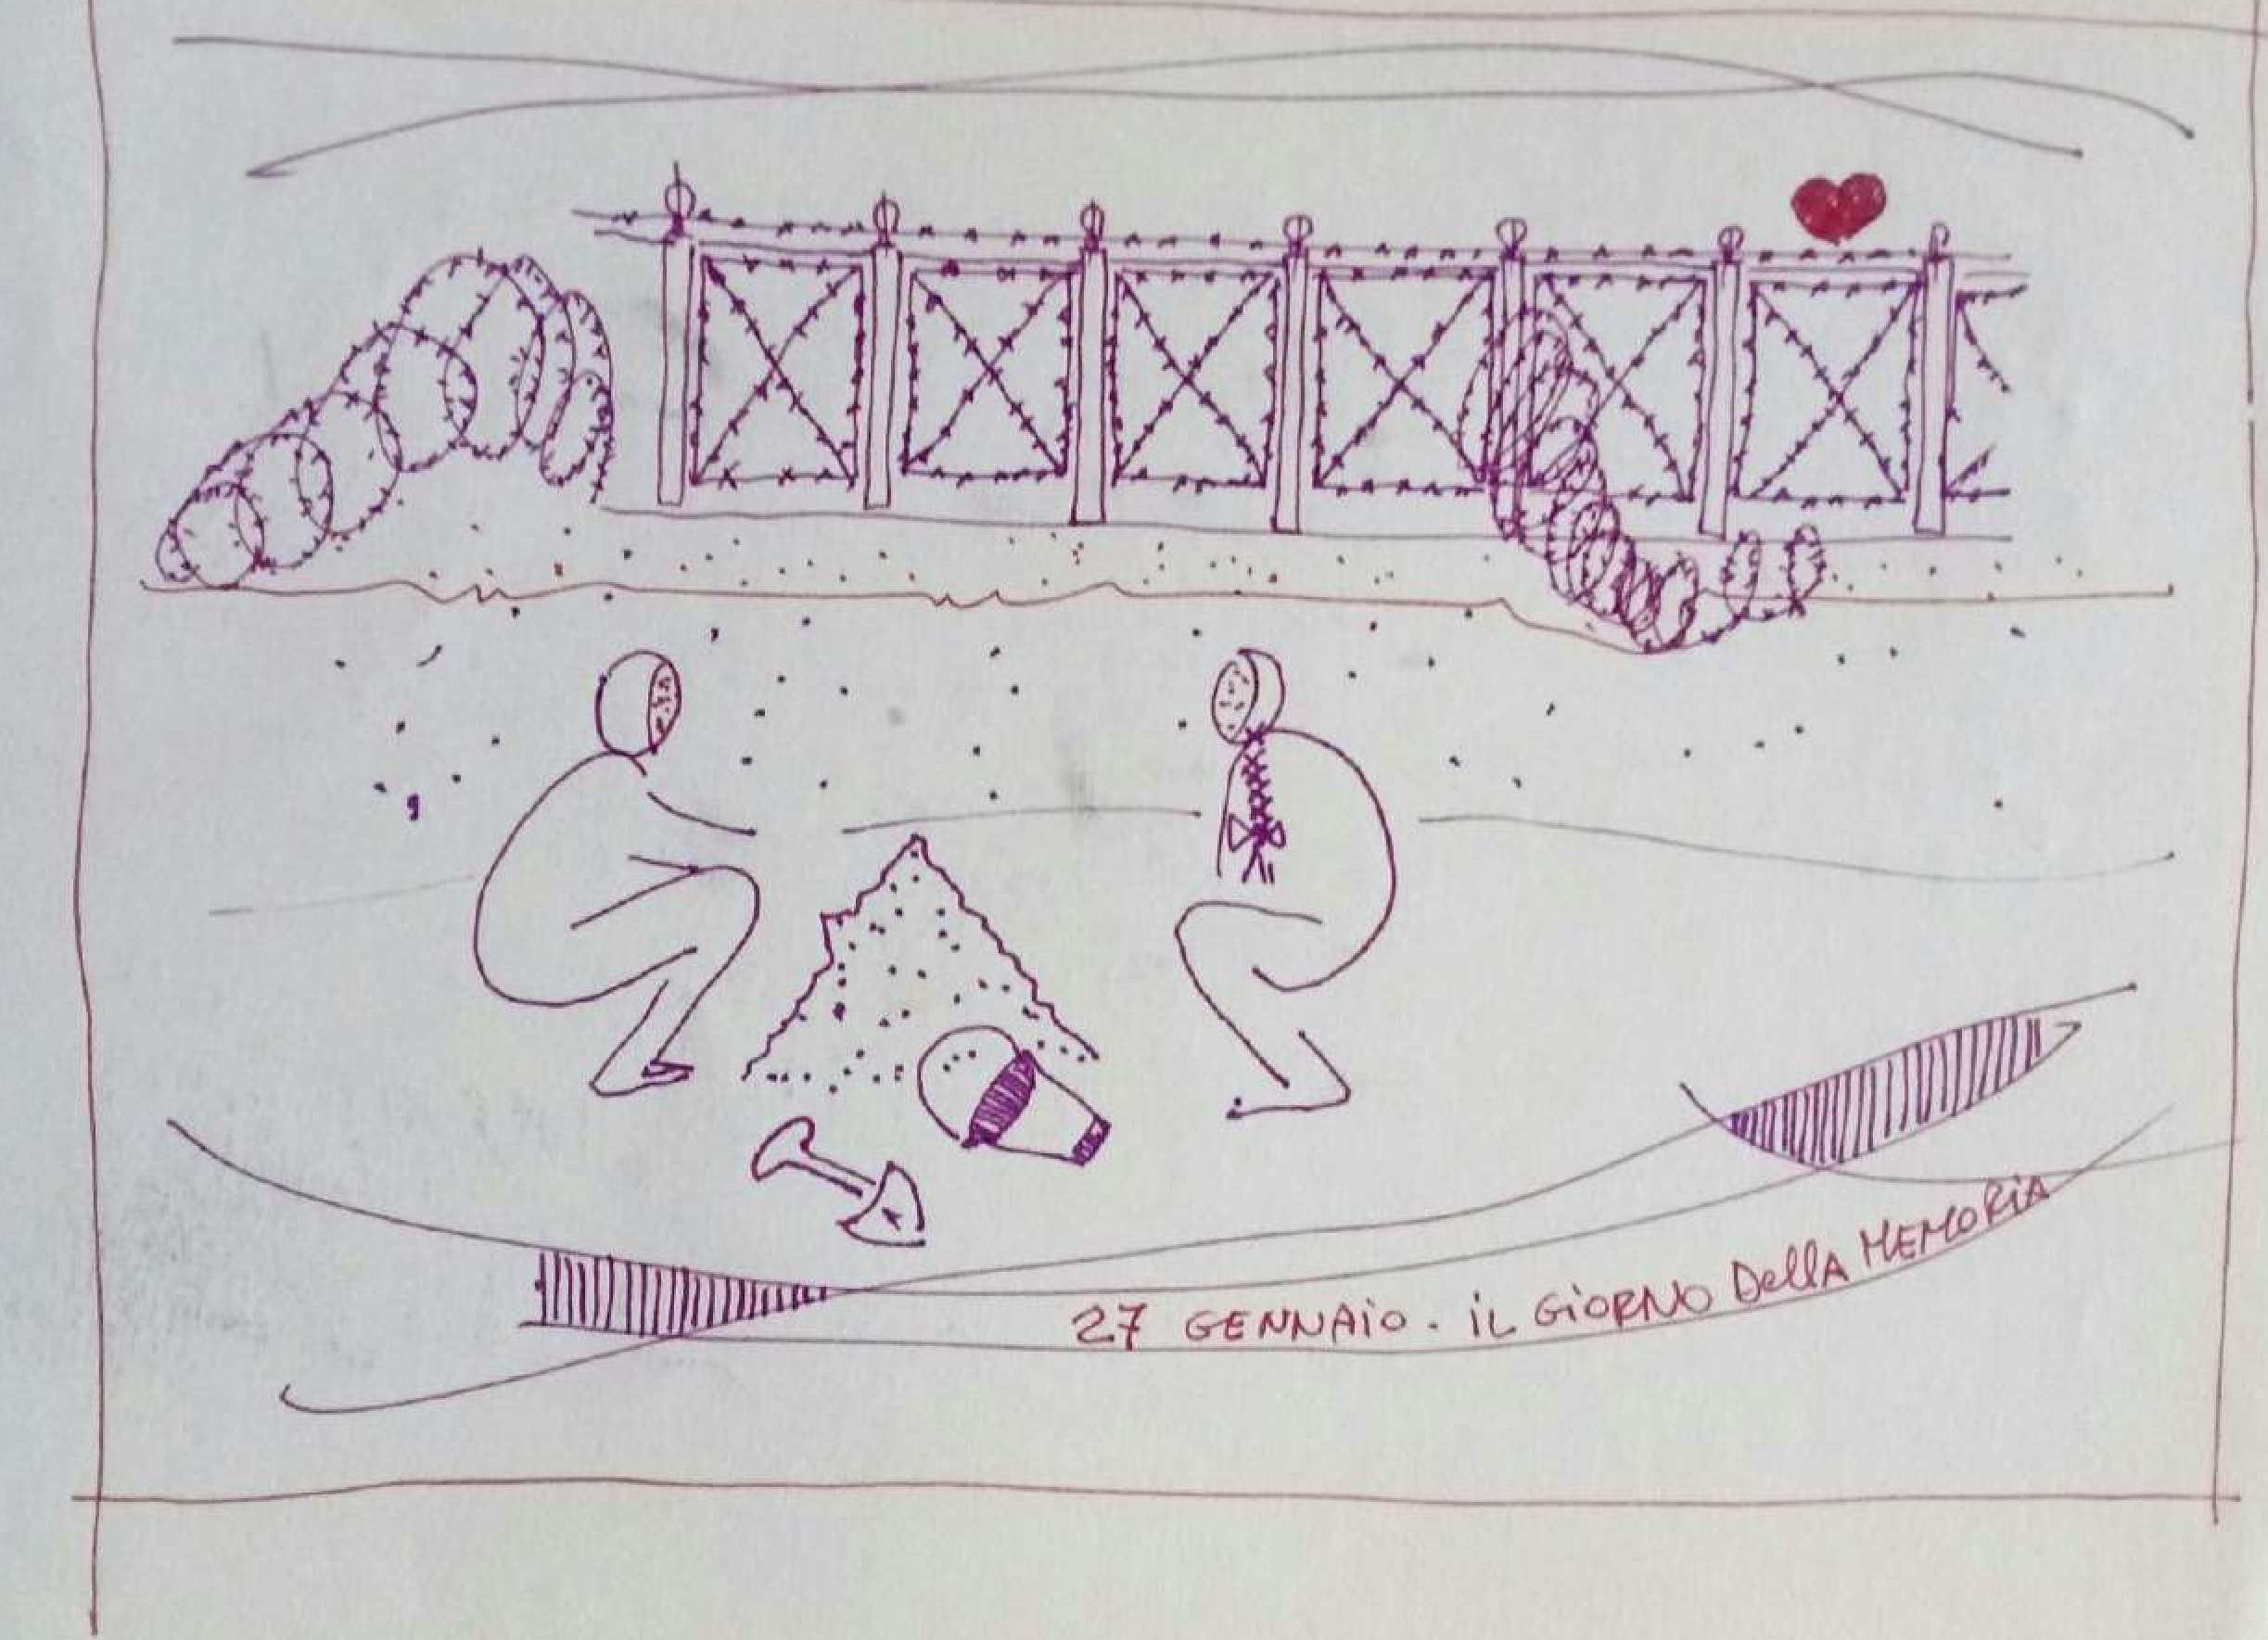 27 GENNAiO. iL GiORNO DellA MEMORiA